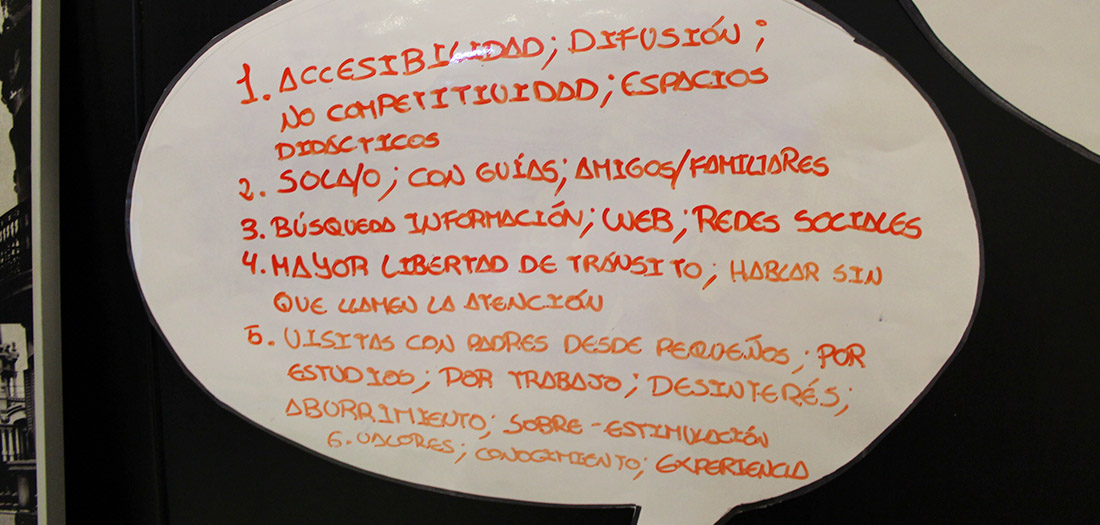 1. ACCESIBILIDAD; DIFUSIÓN;
NO COMPETITIVIDAD; ESPACIOS
DIDÁCTICOS
2. SOLA/O; CON GUÍAS; AMIGOS/FAMILIARES
3. BÚSQUEDA INFORMACIÓN; WEB; REDES SOCIALES
4. MAYOR LIBERTAD DE TRÁNSITO; HABLAR SIN
QUE LLAMEN LA ATENCIÓN
5. VISITAS CON PADRES DESDE PEQUEÑOS; POR
ESTUDIOS; POR TRABAJO; DESINTERÉS;
ABURRIMIENTO; SOBRE-ESTIMULACIÓN
6. VALORES; CONOCIMIENTO; EXPERIENCIA